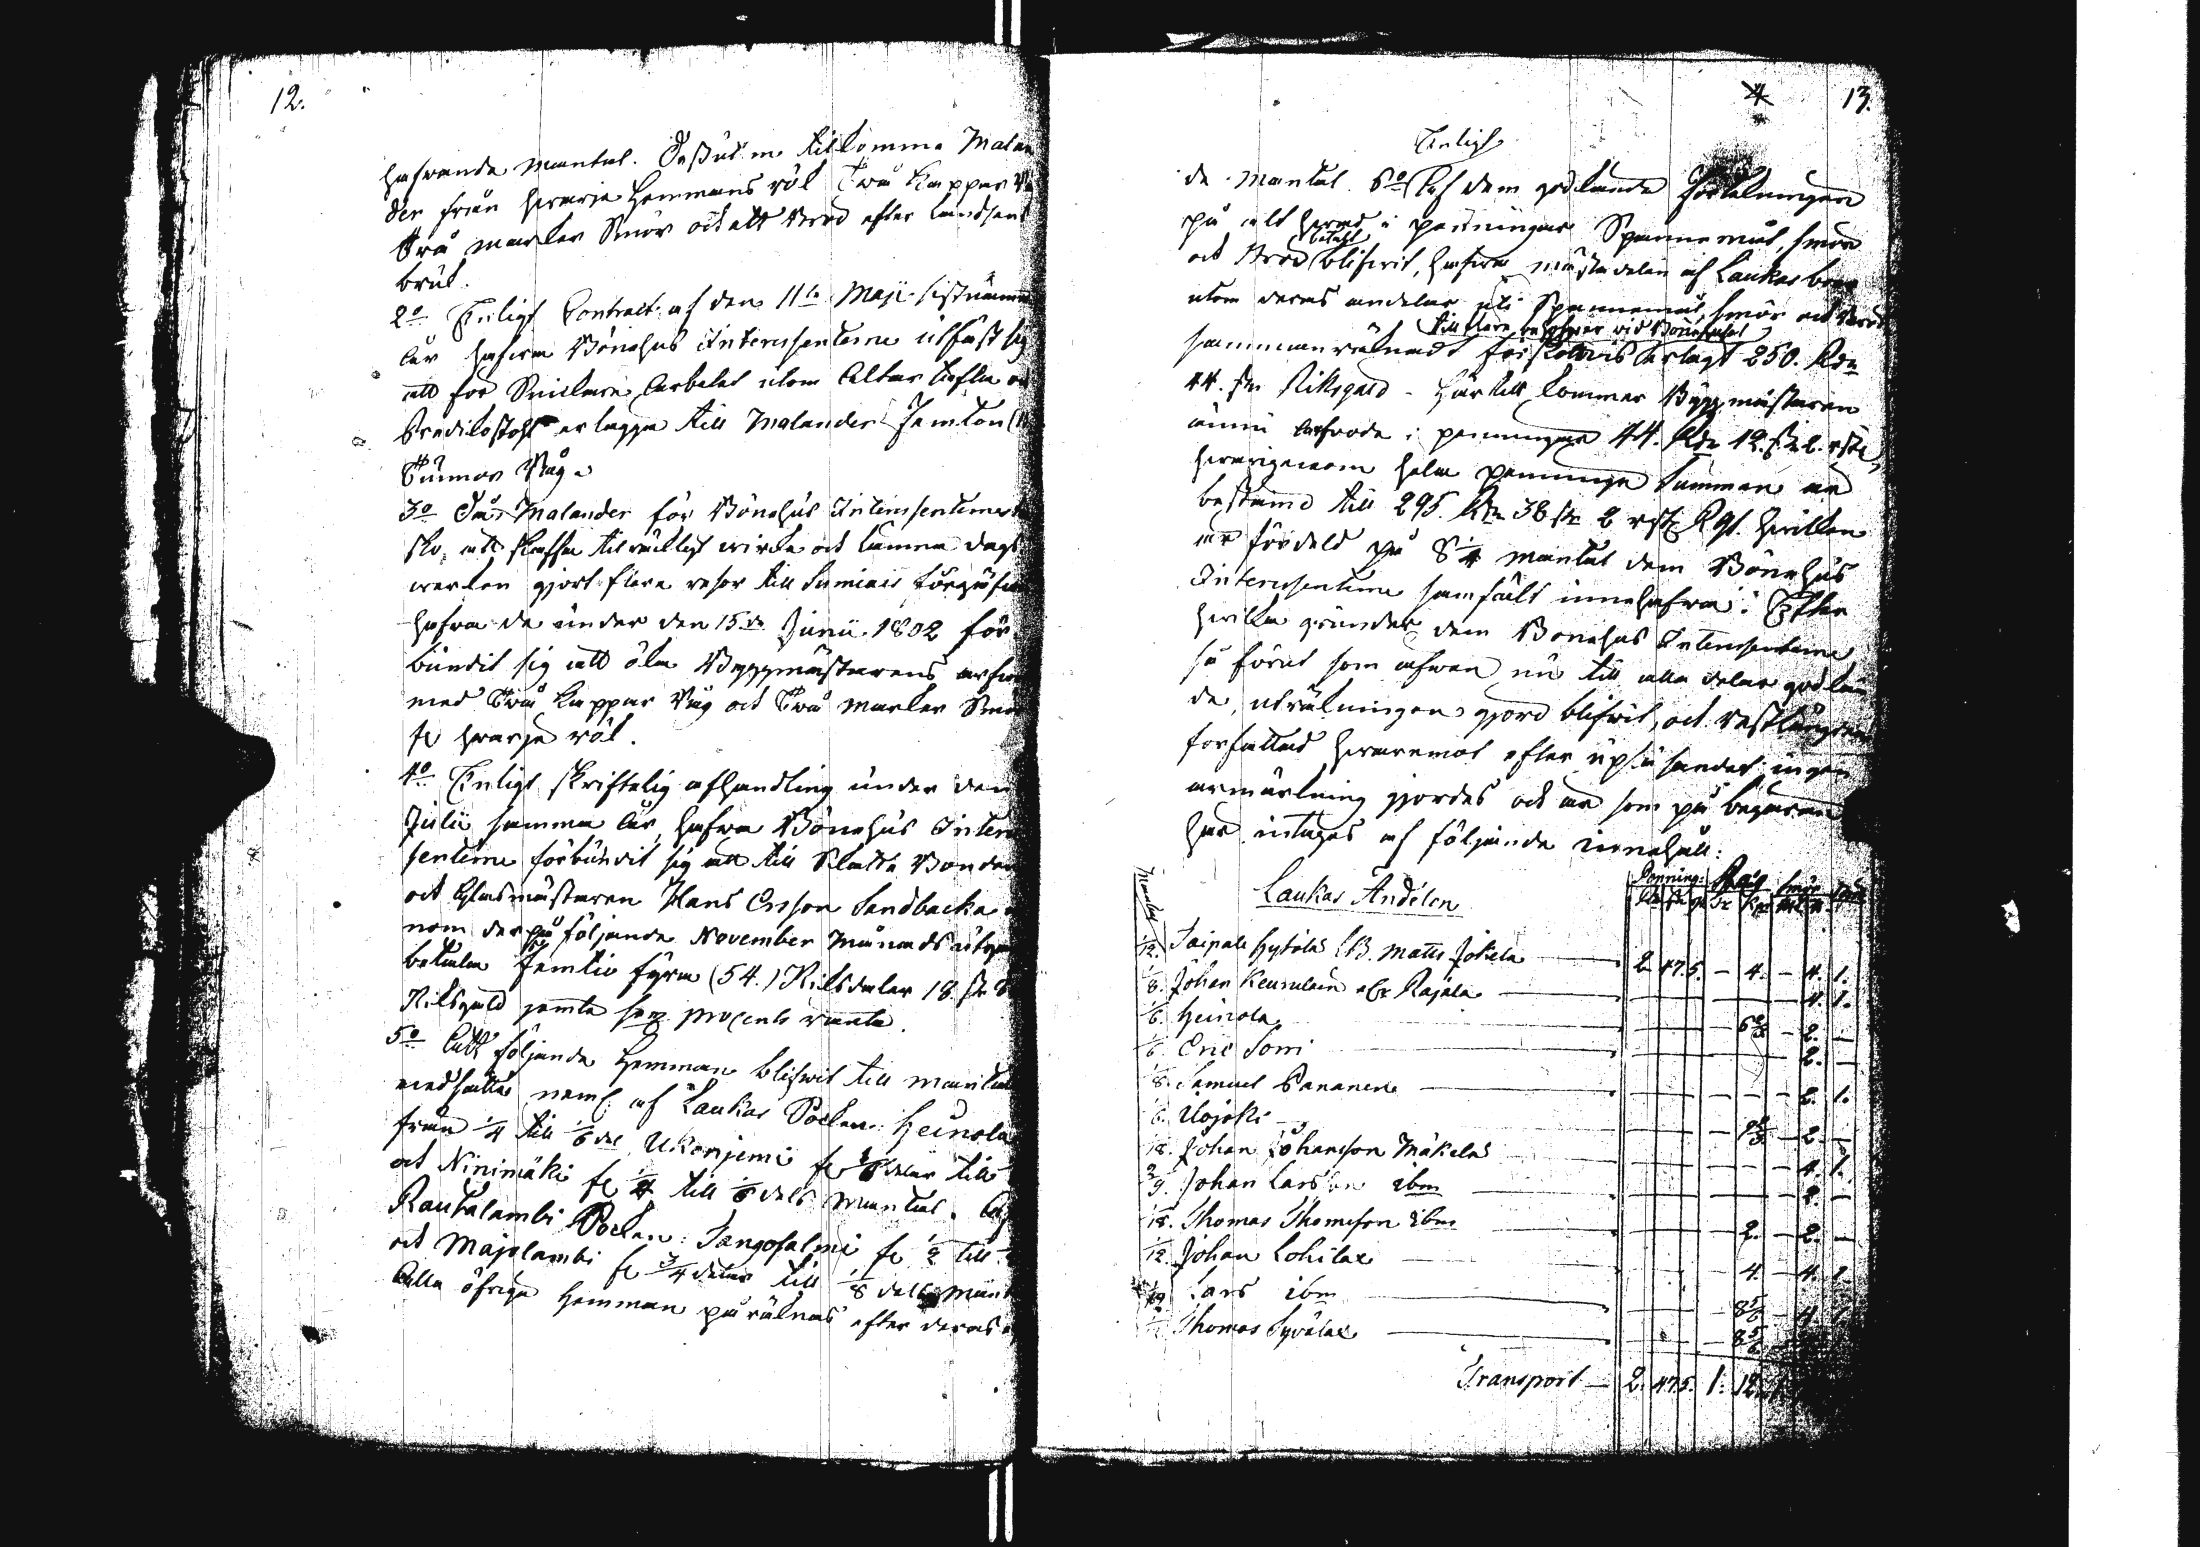 12.
hafwande mantal. Dessutom tillkomma Malan
der från hwarje Hemmans rök Twå Kappar Rå
Twå marker Smör och ett Bröd efter Landsens
bruk.
2o Enligt Contract af den 11te Maji sistnämnde
år hafwa Bönehus Interessenterne utfäst sig
att för Snickare Arbetet utom Altar tafla och
Predikostohl erlägga till Malander Femton (15
Tunnor Råg.
3o Då Malander för Bönehus Interessenternes
sko att skaffa tilräckligt wirke och lämna dags
werken gjort flera resor till Sumiais
hafwa de under den 15de Junii 1802 för
bundit sig att öka Byggmästarens arfwode
med Twå Kappar Råg och Twå marker Smör
fr hwarje rök.
4o Enligt skriftelig afhandling under den
Julii samma år, hafwa Bönehus Interes
senterne förbundit sig att till Skatte Bonden
och Glasmästaren Hans Ersson Sandbacka
nom der på följande November Månads utgång
betala Femtio fyra (54.) Riksdaler 18 sk 8
Riksgäld jemte sex procents ränta.
5o Att följande Hemman blifwit till mantal
nedsatte neml: af Laukas Socken: Heinola
från 1/4 till 1/6 del Ukonjemi fr delar till
och Ninimäki fr 1/4 till 1/6 dels mantal. Af
Rautalambi Socken: Tangosalmi fr 1/2 till
och Majolambi fr 3/4 delar till 1/8 dels mant
Alla öfriga Hemman påräknas efter deras

4 13.
Enligt
de mantal. 6o af dem godkände Förteckningar
på alt hwad i penningar Spannemål, smör
betalt
och Bröd blifwit, hafwa mästa delen af Laukas boer
utom deras andelar uti Spannemål, smör och Bröd
till flere behofwer wid Bönehuset
sammanräknadt förskotwis erlagt 250. Rdr
44. sk Riksgäld. Här till kommer Byggmästaren
ännu arfwode i penningar 44. Rdr 12. sk 2. rst
hwarigenom hela penninge Summan är
bestämd till 295. Rdr 38 sk 2 rst Rgs. hwilken
är fördeld på 8 1/4 mantal dem Bönehus
Interessenterne samfält innehafwa: Efter
hwilka grunder dem Bönehus Interessenterne
så förut som äfwen nu till alla delar godkän
de, uträkningen gjord blifwit, och restlängden
författad hwaremot efter upläsandet ingen
anmärkning gjordes och är som på begäran
här intages af följande innehåll:
Mantal Laukas Andelen Penning: Råg Smör
1/12. Saipale Hytölä (B. Matts Jokela 2 47 5. – 4. – 4. 1.
1/8. Johan Keurulain eller Rajala – 4. 1.
1/6. Heinola 6 2/3 – 2. –
1/6. Eric Sorri 2. –
1/8. Samuel Pananen – 2. 1.
1/6. Ilojoki 2. –
1/18. Johan Johansson Mäkelä 4. 1.
2/9. Johan Larsson ibm 2. –
1/18. Thomas Thomsson ibm 2. – 2. –
1/12. Johan Lohilax 4. – 4. 1.
Lars ibm 8 5/6 – 4
Thomas Syvälax 8 5/6
Transport 2. 47 5. 1. 12